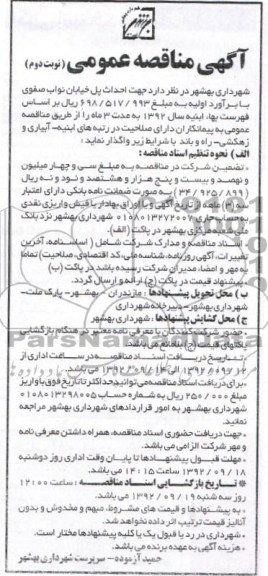 آگهی مناقصه عمومی (نوبت دوم)
شهرداری بهشهر در نظر دارد جهت احداث پل خیابان نواب صفوی
با برآورد اولیه به مبلغ ۶۹۸/۵۱۷/۹۹۳ ریال بر اساس
فهرست بها، ابنیه سال ۱۳۹۲ به مدت ۳ ماه را از طریق مناقصه
عمومی به پیمانکاران دارای صلاحیت در رتبه های ابنیه- آبیاری و
زهکشی- راه و باند با شرایط زیر واگذار نماید:
الف) نحوه تنظیم اسناد مناقصه:
- تضمین شرکت در مناقصه به مبلغ سی و چهار میلیون
و نهصد و بیست و پنج هزار و هشتصد و نود و نه ریال
(۳۴/۹۲۵/۸۹۹) به صورت ضمانت نامه بانکی دارای اعتبار
ماهه از تاریخ آگهی و یا اوراق بهادار یا فیش واریزی نقدی
به حساب جاری ۰۱۰۸۰۱۳۲۷۲۰۰۷ شهرداری بهشهر نزد بانک
ملی شعبه مرکزی بهشهر در پاکت (الف).
- اسناد مناقصه و مدارک شرکت شامل (اساسنامه، آخرین
تغییرات، آگهی روزنامه، شناسه ملی، کد اقتصادی، صلاحیت) تماماً
به مهر و امضاء مدیران شرکت رسیده باشد در پاکت (ب)
- پیشنهاد قیمت در پاکت (ج) ارائه و ارسال گردد.
ب) محل تحویل پیشنهادها: مازندران - بهشهر- پارک ملت-
شهرداری بهشهر- دبیرخانه شهرداری
ج) محل گشایش پیشنهادها: شهرداری بهشهر
- حضور شرکت کنندگان با معرفی نامه معتبر در هنگام بازگشایی
پاکتهای قیمت (ج) بلامانع می باشد.
- تاریخ دریافت اسناد مناقصه در ساعت اداری از
۱۳۹۲/۰۹/۱۲ الی ۱۳۹۲/۰۹/۱۴ می باشد.
- برای دریافت اسناد مناقصه می توانید حداکثر تا تاریخ فوق با واریز
مبلغ ۲۵۰/۰۰۰ ریال به شماره حساب ۰۱۰۸۰۱۳۲۹۸۰۰۵
شهرداری بهشهر به امور قراردادهای شهرداری بهشهر مراجعه
نمائید.
- جهت دریافت حضوری اسناد مناقصه، همراه داشتن معرفی نامه
و مهر شرکت الزامی می باشد.
- مهلت قبول پیشنهادها تا پایان وقت اداری روز دوشنبه
۱۳۹۲/۰۹/۱۸ ساعت ۱۴:۱۵ می باشد.
* تاریخ بازگشایی اسناد مناقصه: ساعت ۱۲:۰۰
روز سه شنبه ۱۳۹۲/۰۹/۱۹ می باشد.
- به پیشنهادها و قیمت های مشروط، مبهم و مخدوش و بدون
آنالیز قیمت ترتیب اثر داده نخواهد شد.
- شهرداری در رد یا قبول یک یا کلیه پیشنهادها مختار است.
- هزینه آگهی به عهده برنده می باشد.
حمید آزموده - سرپرست شهرداری بهشهر